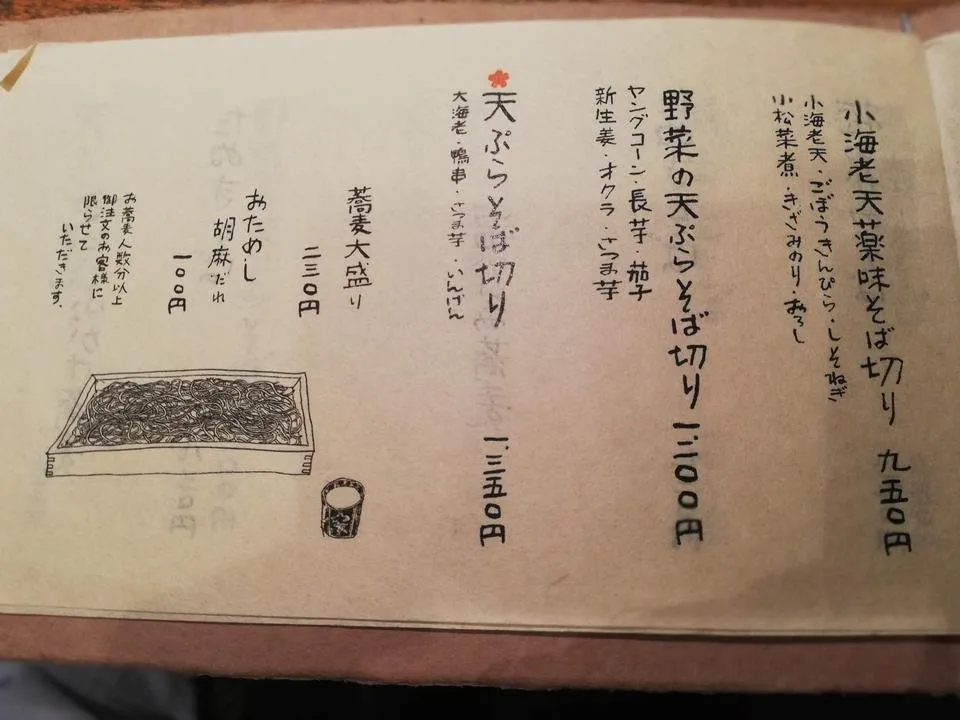 小海老天薬味そば切り 九五〇円
小海老天・ごぼうきんぴら・しそねぎ
小松菜煮・きざみのり・おろし
野菜の天ぷらそば切り 一、二〇〇円
ヤングコーン・長芋・茄子
新生姜・オクラ・さつま芋
天ぷらそば切り 一、三五〇円
大海老・鴨串・さつま芋・いんげん
蕎麦大盛り
二三〇円
おためし
胡麻だれ
一〇〇円
お蕎麦人数分以上
御注文のお客様に
限らせて
いただきます。